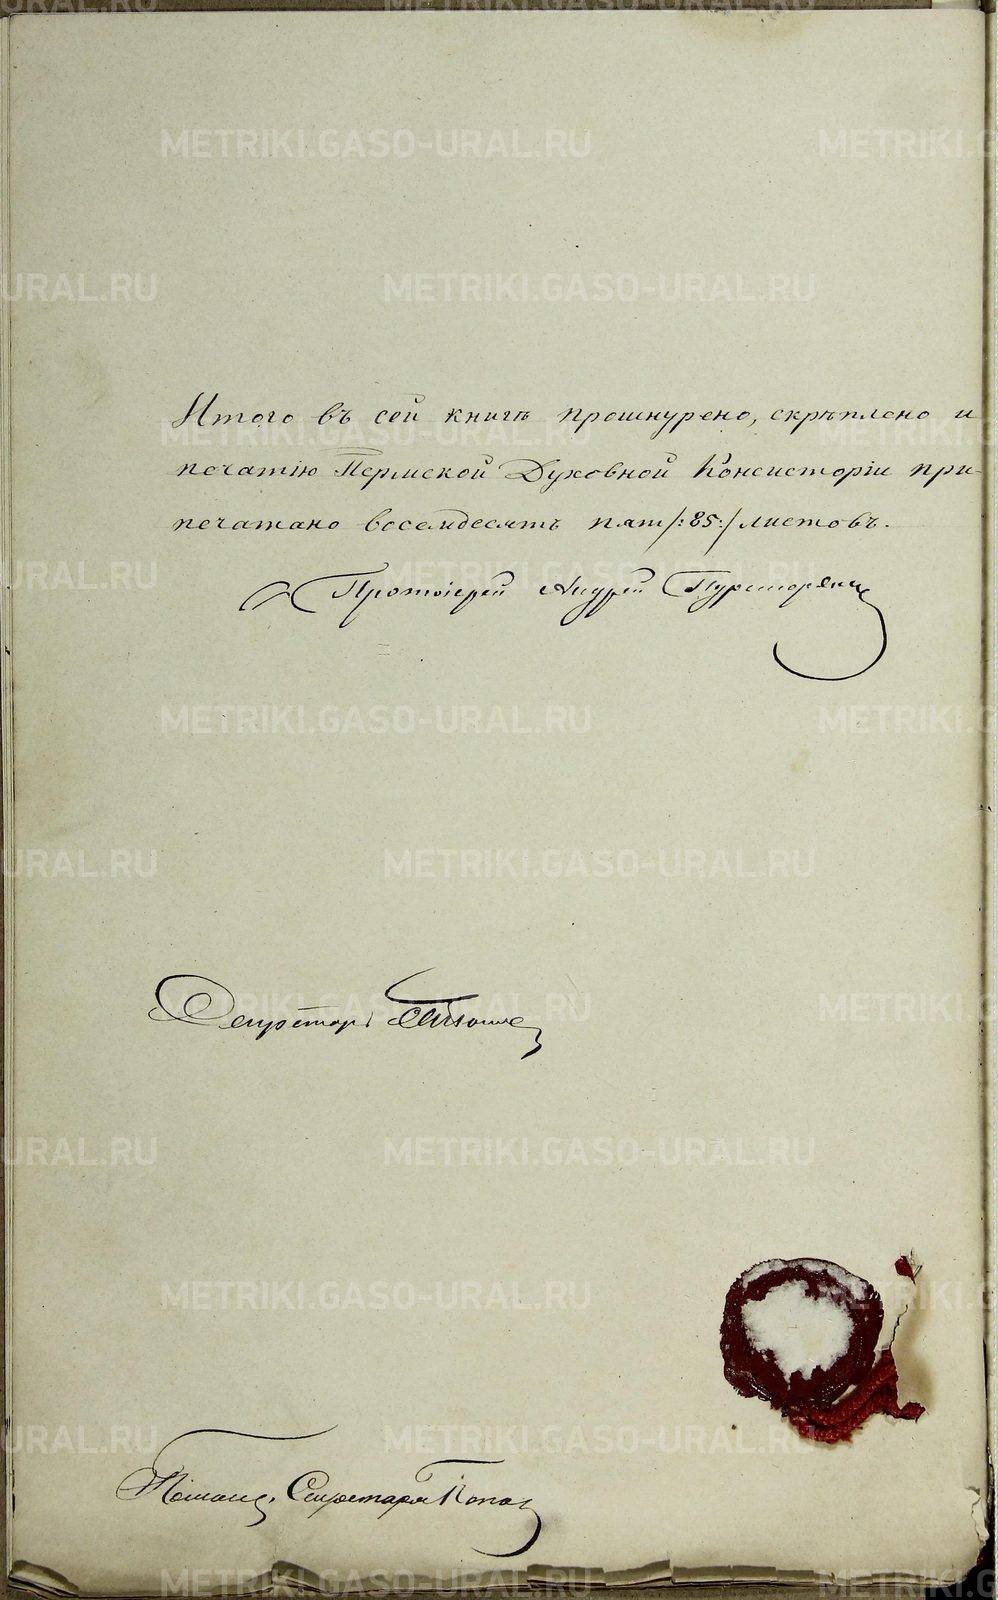 Итого въ сей книгѣ прошнурено, скрѣплено и
печатію Пермской Духовной Консисторіи при-
печатано восемдесятъ пят/:85:/листовъ.
Протоіерей Андрей
Секретарь
Помощ. Секретаря Попов
METRIKI.GASO-URAL.RU